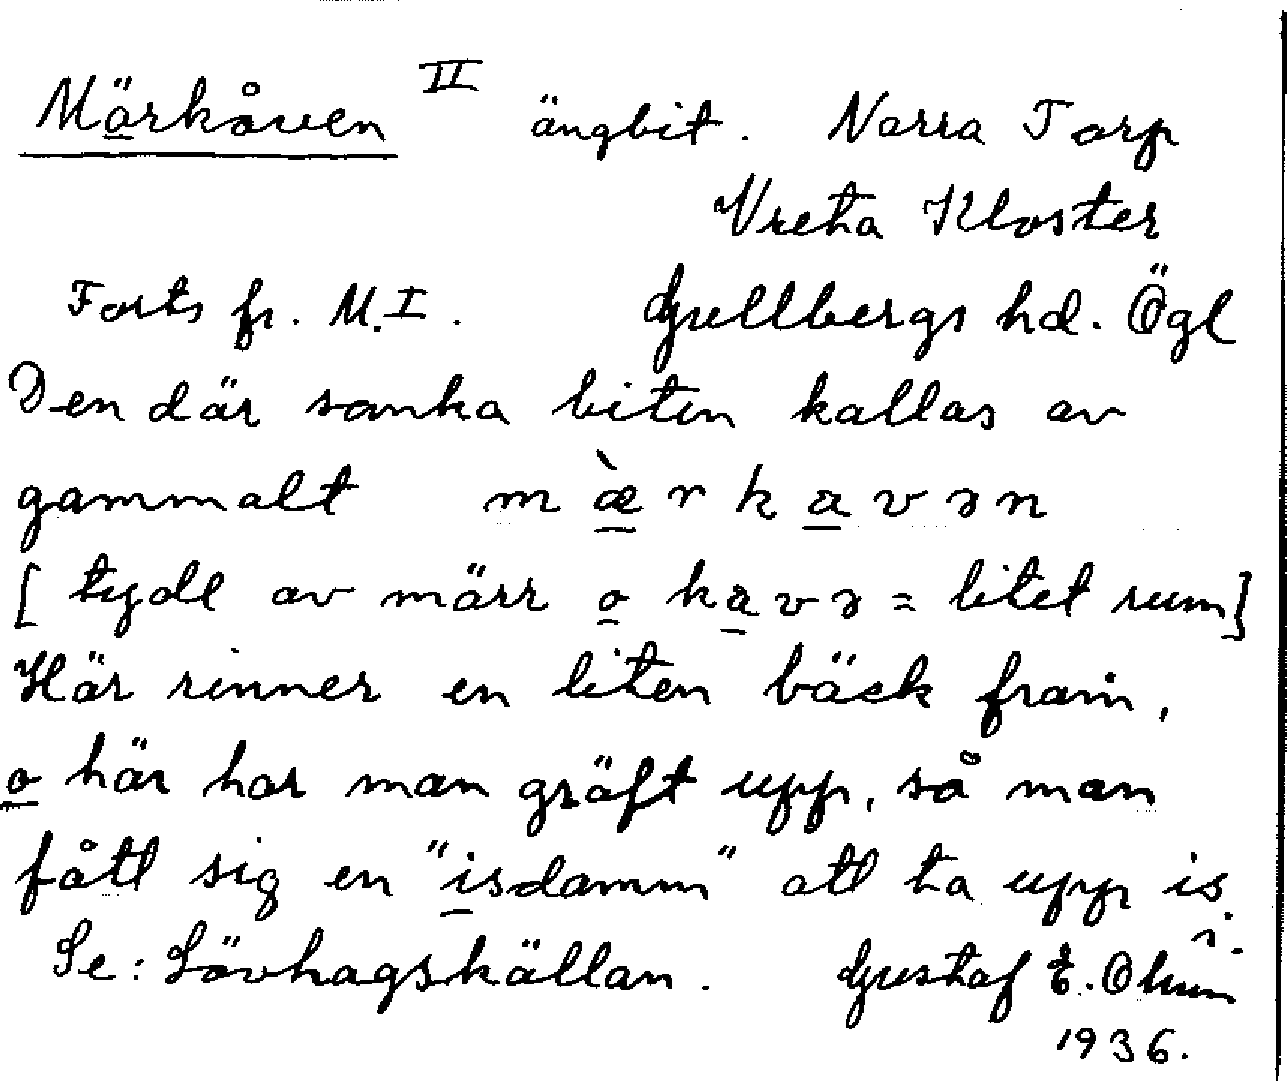 Märkåven II ängbit. Norra Torp
Vreta Kloster
Forts fr. M.I. Gullbergs hd. Ögl
Den där sanka biten kallas av
gammalt mæ̀rkavən
[tydl av märr o kavə = litet rum]
Här rinner en liten bäck fram,
o här har man gräft upp, så man
fått sig en "isdamm" att ta upp is
i.
Se: Lövhagskällan. Gustaf E. Ohum
1936.